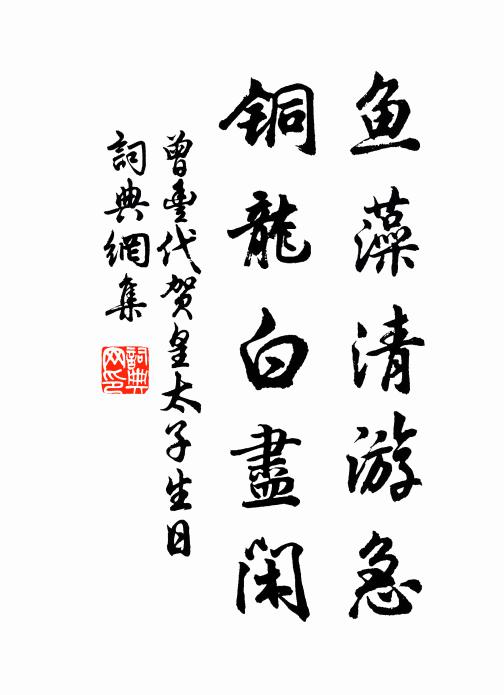 鱼藻清游急
铜龍白盡閑
曾豐代贺皇太子生日
詞典網集
詞典网印